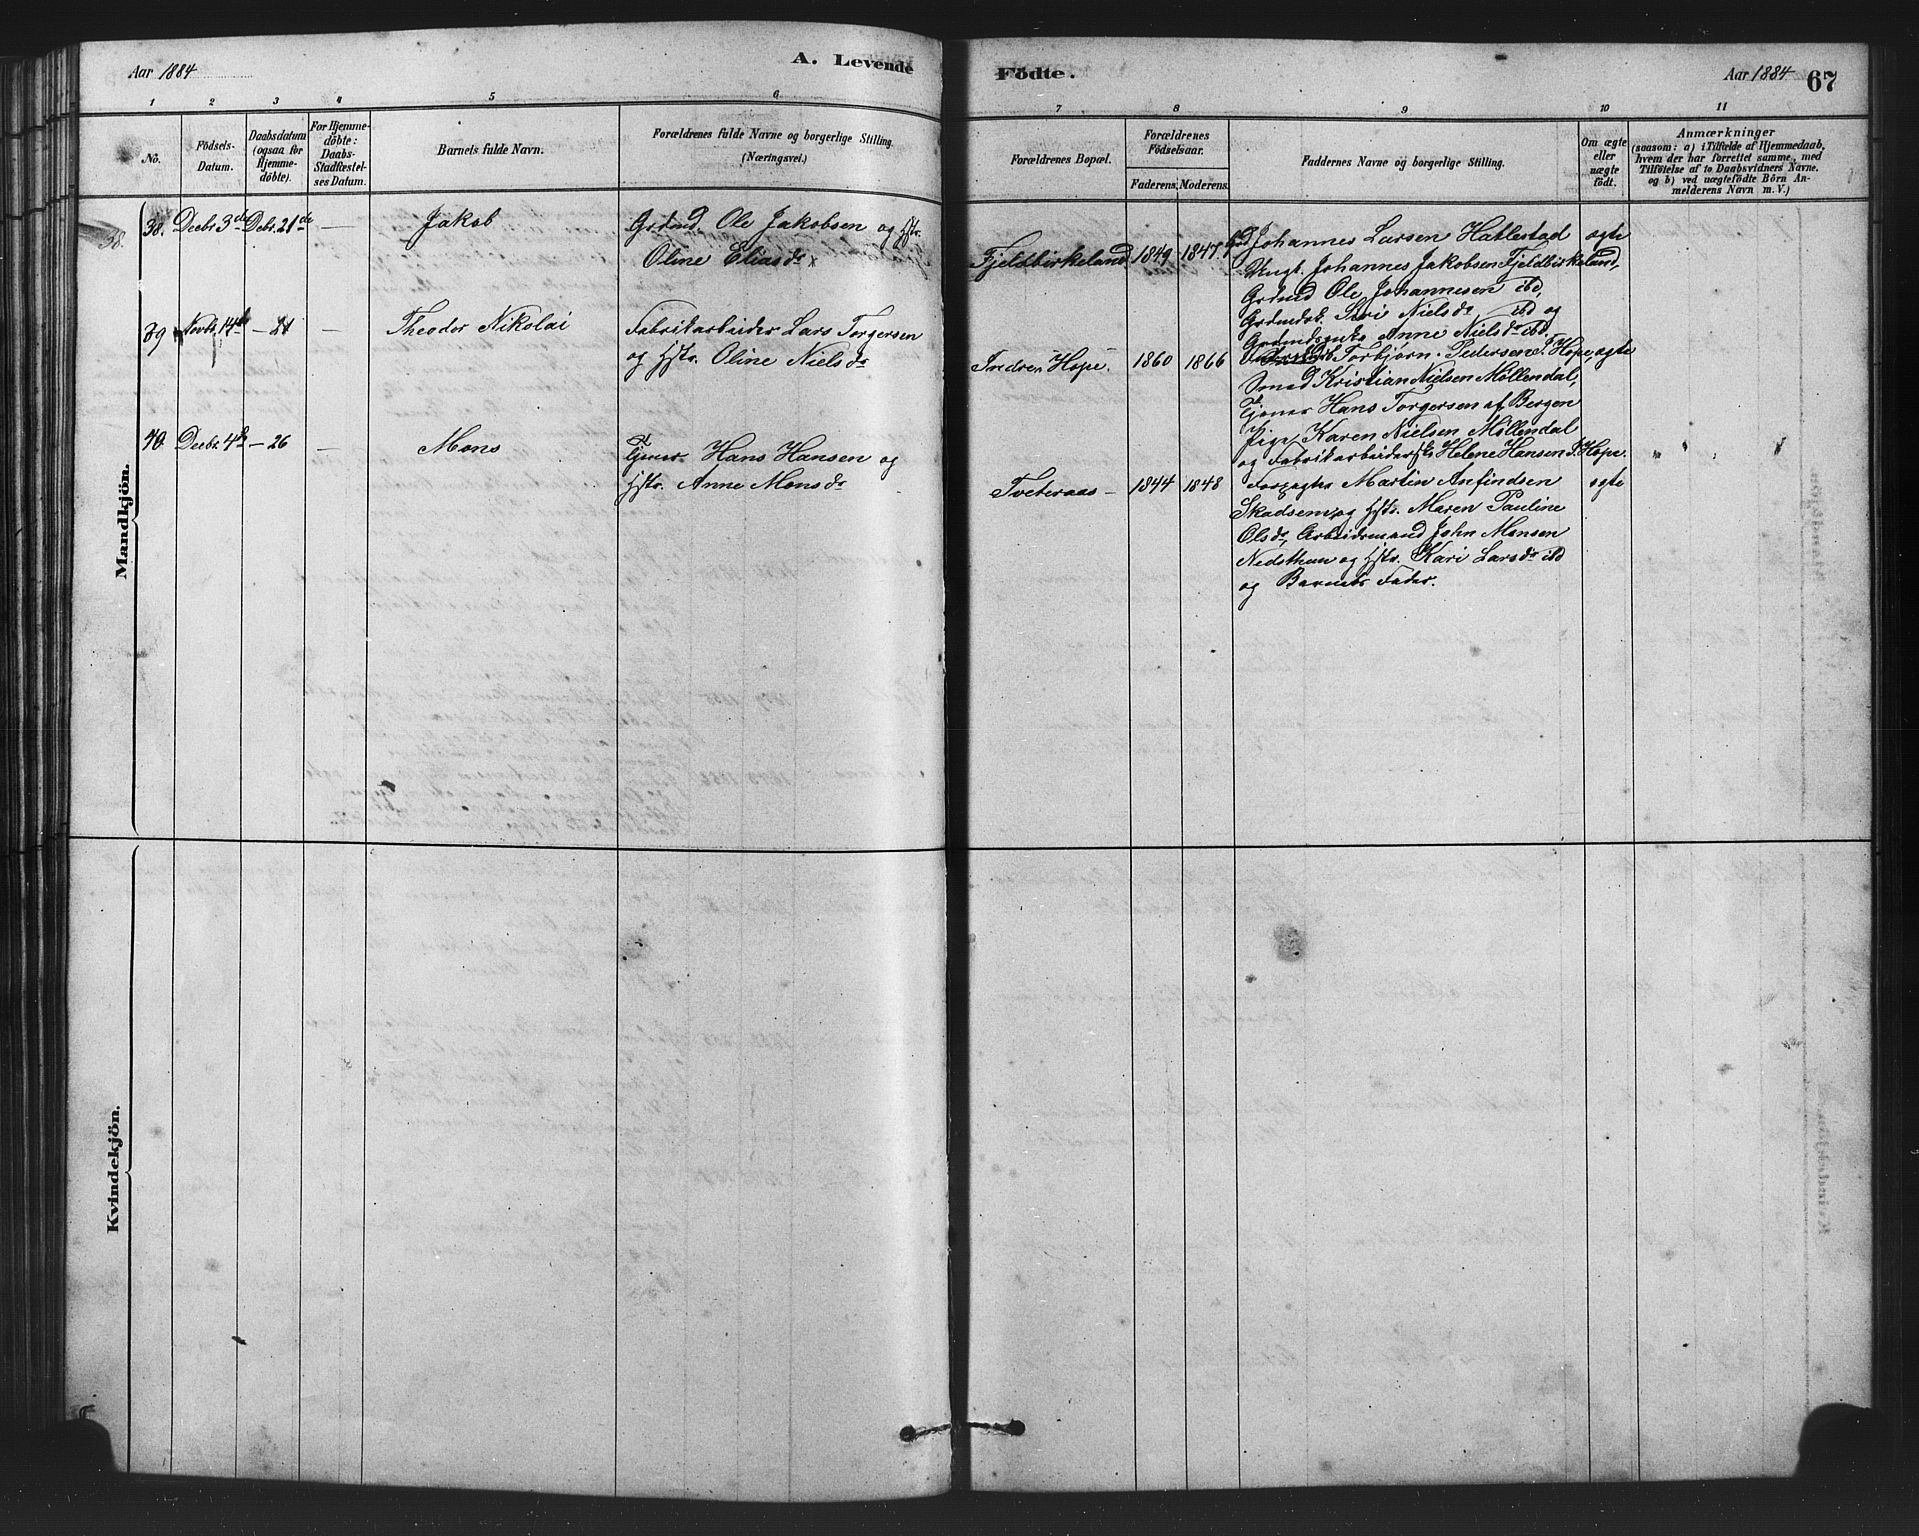 Aar 1884
A. Levende Födte.
Aar 1884
67
1 2 3 4 5 6 7 8 9 10 11
No.
Födsels-
Datum.
Daabsdatum
(ogsaa for
Hjemme-
döbte).
For Hjemme-
döbte:
Daabs-
Stadfæstel-
ses Datum.
Barnets fulde Navn.
Forældrenes fulde Navne og borgerlige Stilling.
(Næringsvei.)
Forældrenes Bopæl.
Forældrenes
Födselsaar.
Faderens. Moderens.
Faddernes Navne og borgerlige Stilling.
Om ægte
eller
uægte
födt.
Anmærkninger
(saasom: a) i Tilfælde af Hjemmedaab,
hvem der har forrettet samme, med
Tilföielse af to Daabsvidners Navne.
og b) ved uægtefödte Börn An-
melderens Navn m. V.)
Mandkjön.
38.
38. Decbr 3de Debr. 21de — Jakob
Grdmd. Ole Jakobsen og Hstr.
Oline Eliasdr
Fjeldbirkeland 1849 1847
Grd Johannes Larsen Hatlestad
Ungk. Johannes Jakobsen Fjeldbirkeland,
Grdmd Ole Johannesen ibd,
Grdmdsk. Siri Nielsdr ibd og
Grdmdsenke Anne Nielsdr ibd.
ægte
39 Novbr. 14de — 21 — Theodor Nikolai
Fabrikarbeider Lars Torgersen
og Hstr. Oline Nielsdr
Indre Hope. 1860 1866
Torbjörn Pedersen I. Hope,
Smed Kristian Nielsen Møllendal,
Tjener Hans Torgersen af Bergen
Pige Karen Nielsen Møllendal
og Fabrikarbeiderske Helene Hansen I. Hope.
ægte
40. Decbr. 4de — 26 — Mons
Tjener. Hans Hansen og
Hstr. Anne Monsdr
Tveteraas — 1844 1848
Forpagter Martin Anfindsen
Skadsem og Hstr. Maren Pauline
Olsdr, Arbeidsmand John Monsen
Nedsthun og Hstr. Kari Larsdr ibd
og Barnets Fader.
ægte
Kvindekjön.